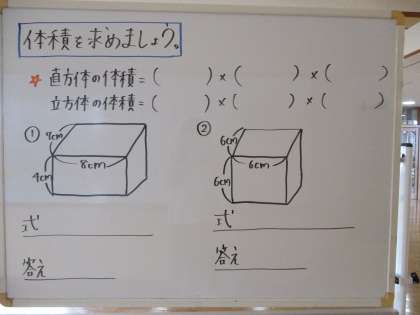 体積を求めましょう。
☆直方体の体積=( )×( )×( )
立方体の体積=( )×( )×( )
① ②
9cm 6cm
8cm 6cm
4cm 6cm
式 式
答え 答え